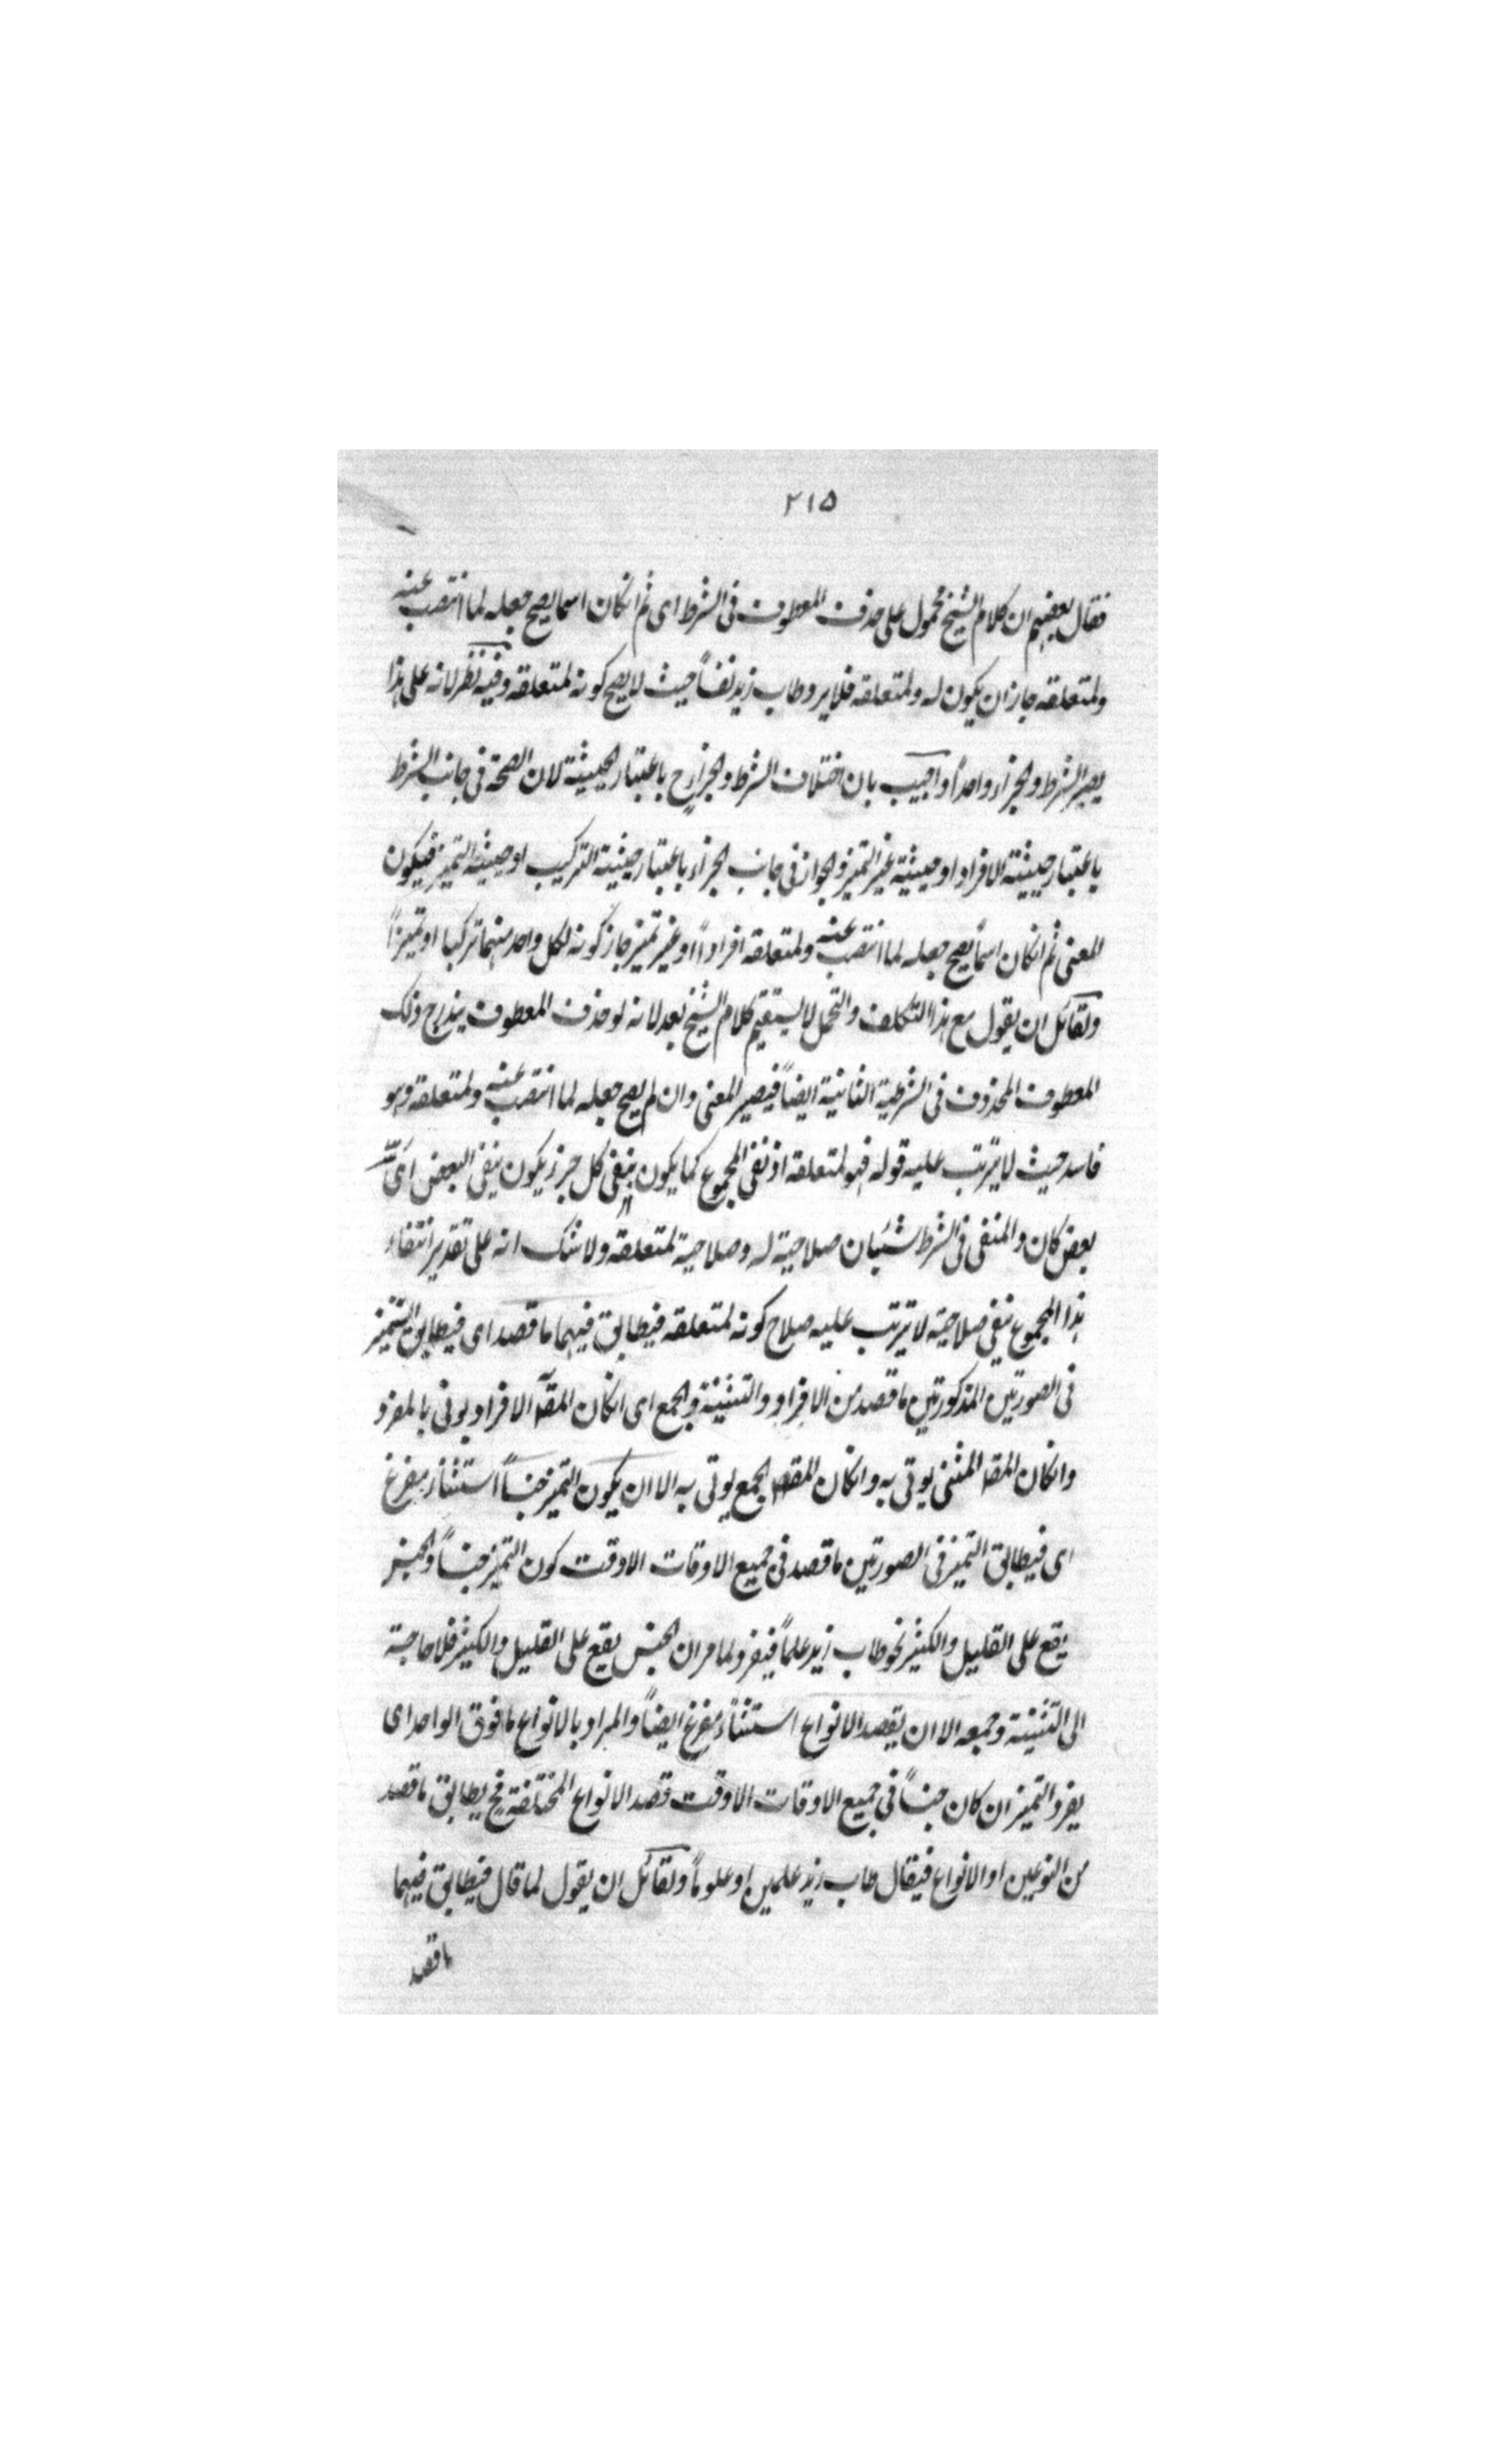 ٢١٥
فقال بعضهم ان كلام الشيخ محمول على حذف المعطوف فى الشرط اى ثم انكان اسما يصح جعله لما انتصب عنه
ولمتعلقه جاز ان يكون له ولمتعلقه فلا يرد طاب زيد نفساً حيث لا يصح كونه لمتعلقه وفيه نظر لانه على هذا
يصير الشرط والجزاء واحداً واجيب بان اختلاف الشرط والجزاء ح باعتبار الحيثية لان الصحة فى جانب الشرط
باعتبار حيثية الافراد او حيثية غير التميز والجواز فى جانب الجزاء باعتبار حيثية التركيب او حيثية التميز فيكون
المعنى ثم انكان اسماً يصح جعله لما انتصب عنه ولمتعلقه افراداً او غير تميز جاز كونه لكل واحد منهما تركيبا او تميزاً
ولقائل ان يقول مع هذا التكلف والتحمل لا يستقيم كلام الشيخ بعد لانه لو حذف المعطوف يندرج ذلك
المعطوف المحذوف فى الشرطية الثانية ايضاً فيصير المعنى وان لم يصح جعله لما انتصب عنه ولمتعلقه وهو
فاسد حيث لا يترتب عليه قوله فهو لمتعلقه اذ نفى المجموع كما يكون بنفى كل جزء يكون بنفى البعض اىّ
بعض كان والمنفى فى الشرط شيئان صلاحية له وصلاحية لمتعلقه ولا شك انه على تقدير انتفاء
هذا المجموع بنفى صلاحية لا يترتب عليه صلاح كونه لمتعلقه فيطابق فيهما ما قصد اى فيطابق التميز
فى الصورتين المذكورتين ما قصد من الافراد والتثنية والجمع اى انكان المقصـ الافراد يوتى بالمفرد
وانكان المقصـ المثنى يوتى به وانكان المقصـ الجمع يوتى به الا ان يكون التميز جنساً استثناء مفرغ
اى فيطابق التميز فى الصورتين ما قصد فى جميع الاوقات الا وقت كون التميز جنساً والجنس
يقع على القليل والكثير نحو طاب زيد علماً فيفرد لما مر ان الجنس يقع على القليل والكثير فلا حاجة
الى التثنية وجمعه الا ان يقصد الانواع استثناء مفرغ ايضاً والمراد بالانواع ما فوق الواحد اى
يفرد التميز ان كان جنساً فى جميع الاوقات الا وقت قصد الانواع المختلفة فح يطابق ما قصد
من النوعين او الانواع فيقال طاب زيد علمين او علوماً ولقائل ان يقول لما قال فيطابق فيهما
ما قصد